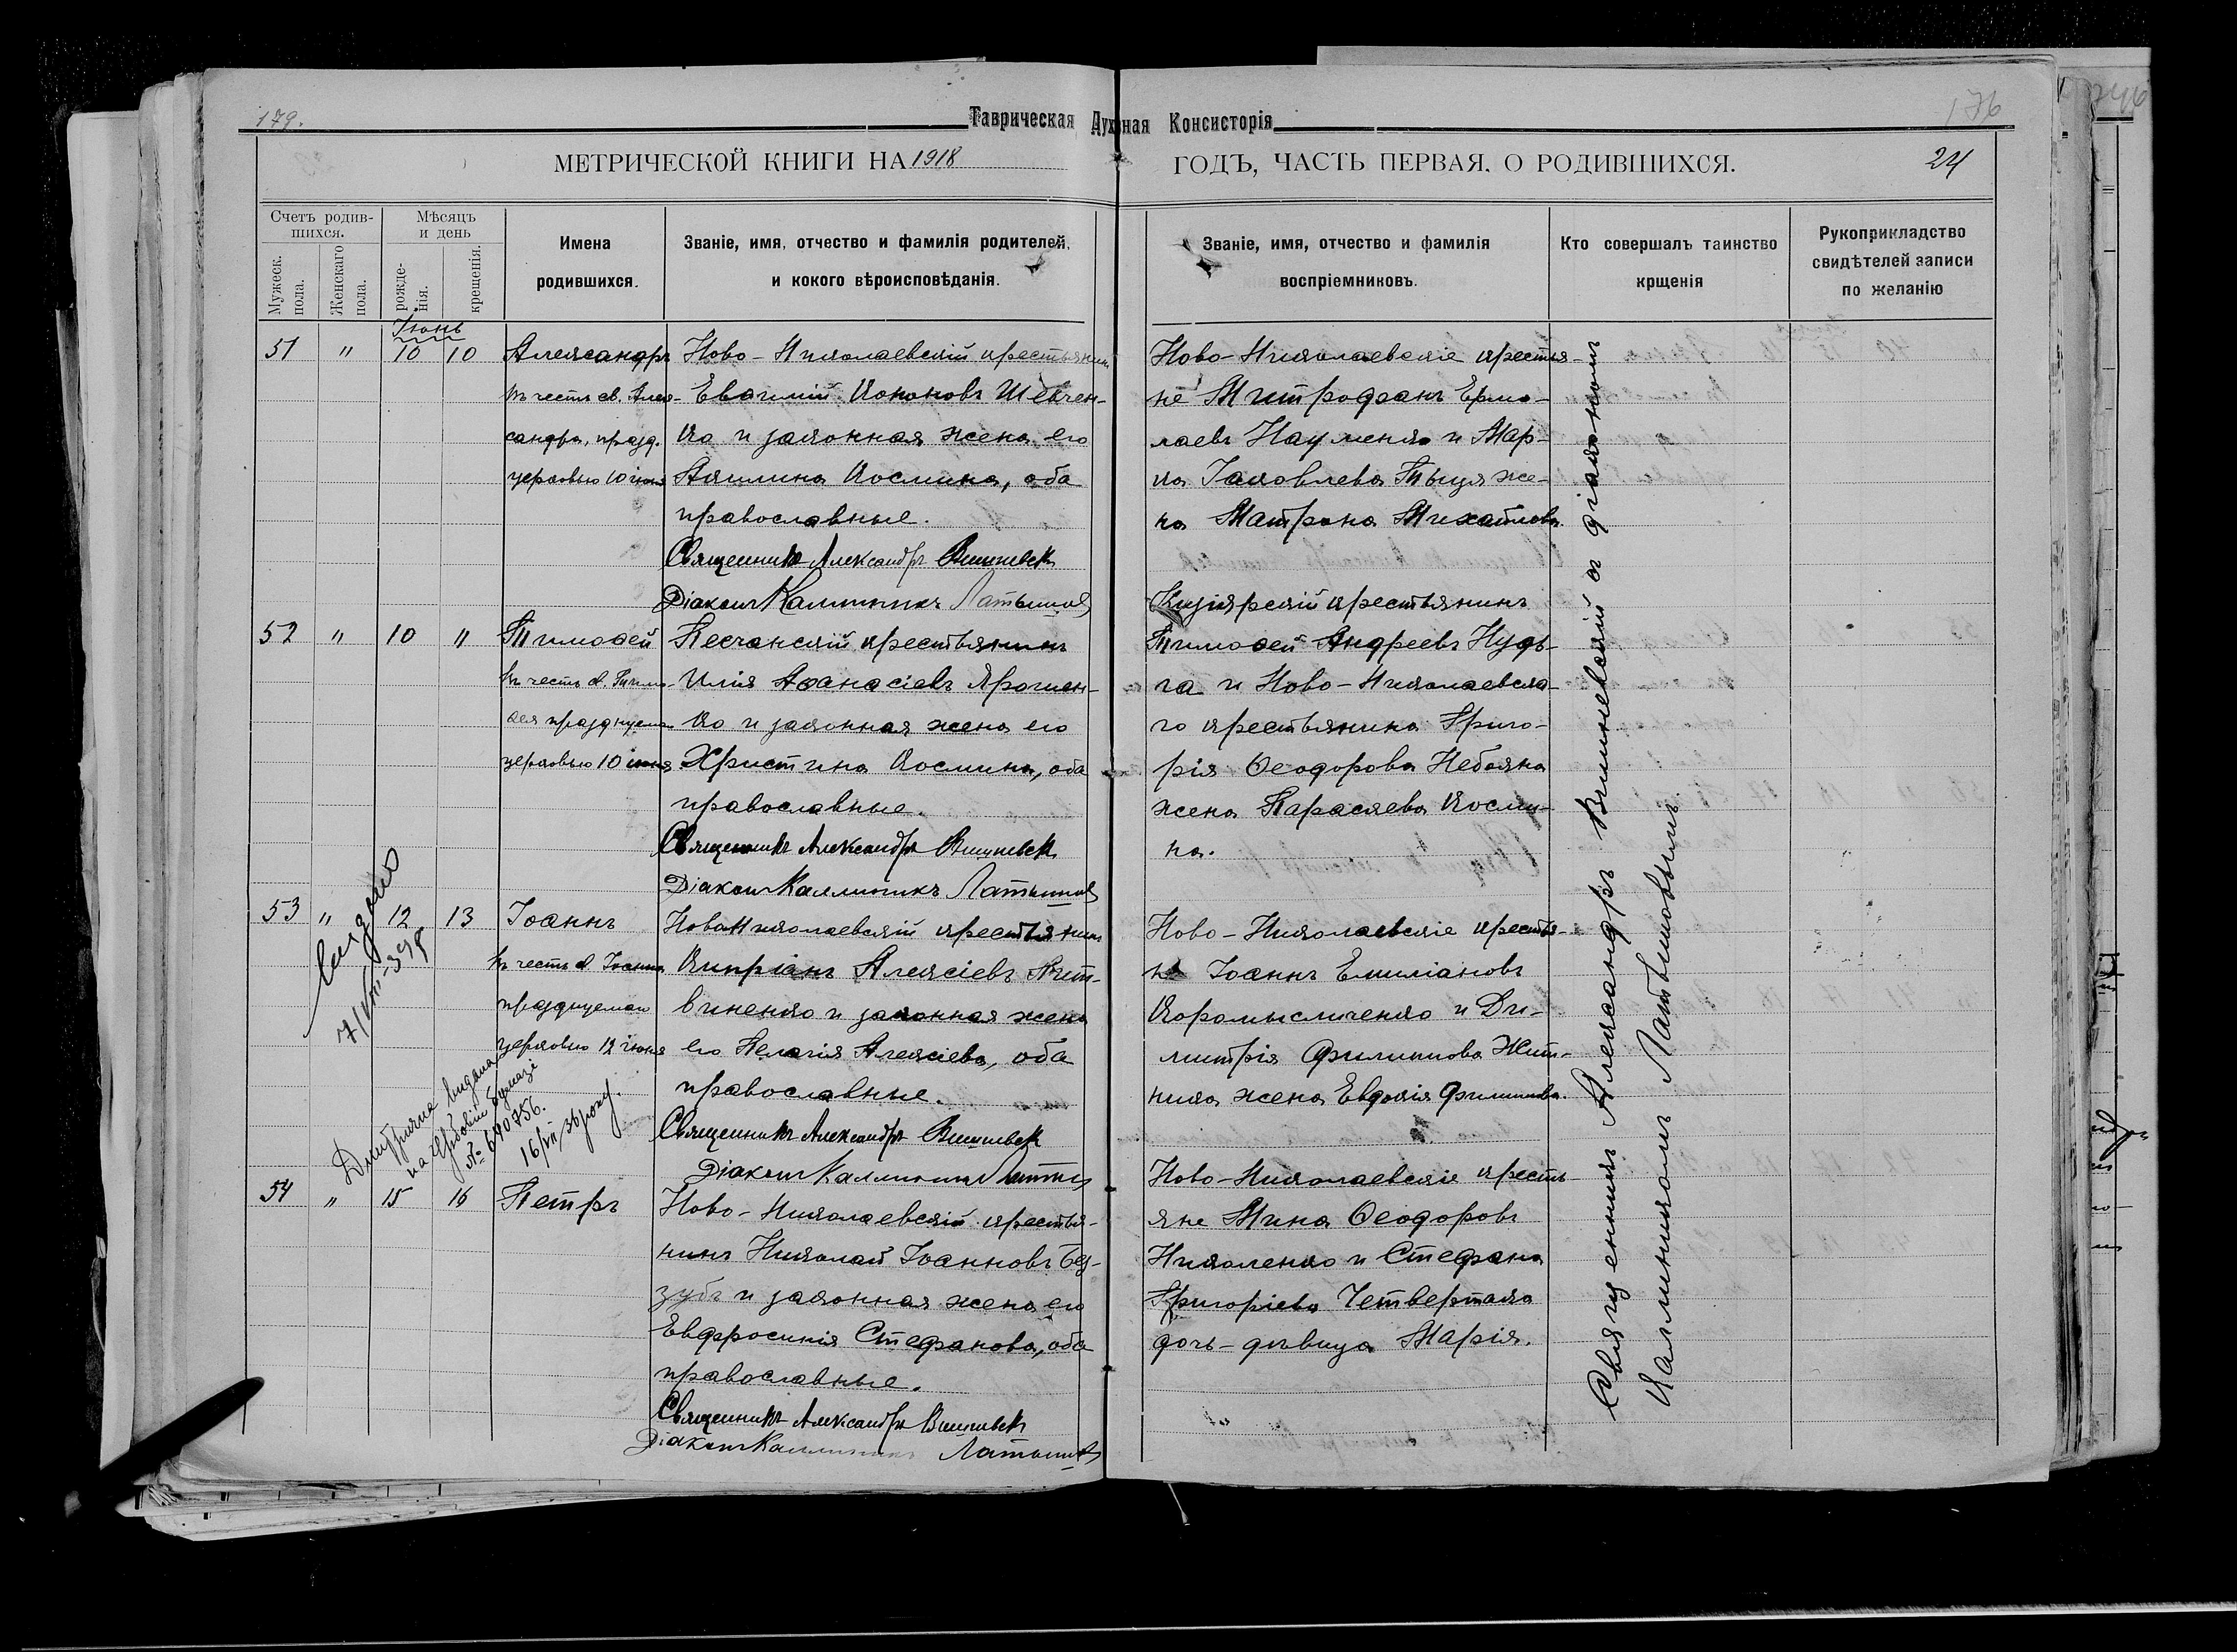 179.
Таврическая Духовная Консисторія
176
МЕТРИЧЕСКОЙ КНИГИ НА 1918
ГОДЪ, ЧАСТЬ ПЕРВАЯ, О РОДИВШИХСЯ.
24
Счетъ родив-
шихся.
Мужеск.
пола.
Женскаго
пола.
Мѣсяцъ
и день
рожде-
нія.
крещенія.
Имена
родившихся.
Званіе, имя, отчество и фамилія родителей,
и кокого вѣроисповѣданія.
Званіе, имя, отчество и фамилія
воспріемниковъ.
Кто совершалъ таинство
крщенія
Рукоприкладство
свидѣтелей записи
по желанію
Іюнь
51 " 10 10
Александръ
въ честь св. Алек-
сандра, празд.
церковью 10 іюня
Ново-Николаевскій крестьянинъ
Евфимій Кононовъ Шевчен-
ко и законная жена его
Акилина Космина, оба
православные.
Священникъ Александръ Вишневск
Діаконъ Каллиникъ Латышовъ
Ново-Николаевскіе крестья-
не Митрофанъ Ермо-
лаевъ Науменко и Мар-
ка Іаковлева Тыця же-
на Матрона Михайлова.
52 " 10 "
Тимофей
въ честь св. Тимо-
фея празднуемаго
церковью 10 іюня
Песчанскій крестьянинъ
Илія Афанасіевъ Ярошен-
ко и законная жена его
Христина Космина, оба
православные.
Священникъ Александръ Вишневск
Діаконъ Каллиникъ Латышовъ
Кизіярскій крестьянинъ
Тимофей Андреевъ Нудь-
га и Ново-Николаевска-
го крестьянина Григо-
рія Феодорова Небояка
жена Параскева Косми-
на.
53 " 12 13
Іоаннъ
въ честь св. Іоанна
празднуемаго
церковью 12 іюня
Ново-Николаевскій крестьянинъ
Кипріанъ Алексіевъ Лит-
виненко и законная жена
его Пелагія Алексіева, оба
православные.
Священникъ Александръ Вишневск
Діаконъ Каллиникъ Латыш
Ново-Николаевскіе крестья-
не Іоаннъ Емиліановъ
Коромысличенко и Ди-
митрія Филиппова Жит-
ника жена Евдокія Филиппова.
видано
7/VIII-39р
Дмитрична видана
на гербовім бумазі
№ 640756.
16/VII 36 року.
54 " 15 16
Петръ
Ново-Николаевскій крестья-
нинъ Николай Іоанновъ Без-
зубъ и законная жена его
Евфросинія Стефанова, оба
православные.
Священникъ Александръ Вишневск
Діаконъ Каллиникъ Латышовъ
Ново-Николаевскіе кресть-
яне Мина Феодоровъ
Николенко и Стефана
Григоріева Четвертака
дочь-дѣвица Марія.
Священникъ Александръ Вишневскій съ діакономъ
Каллиникомъ Латышовымъ